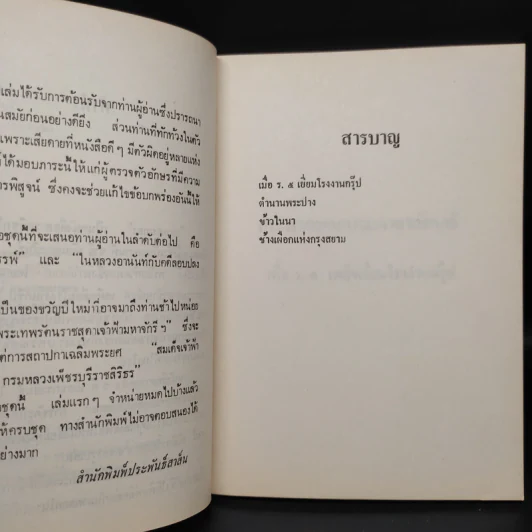 เล่มได้รับการต้อนรับจากท่านผู้อ่านซึ่งปรารถนา
นสมัยก่อนอย่างดียิ่ง ส่วนท่านที่ทักท้วงในตัว
เพราะเสียดายที่หนังสือดีๆ มีตัวผิดอยู่หลายแห่ง
ได้มอบภาระนี้ให้แก่ผู้ตรวจตัวอักษรที่มีความ
ารพิสูจน์ ซึ่งคงจะช่วยแก้ไขข้อบกพร่องอันนี้ให้
อชุดนี้ที่จะเสนอท่านผู้อ่านในลำดับต่อไป คือ
รรพ์" และ "ในหลวงอานันท์กับคดีลอบปลง
เป็นของขวัญปีใหม่ที่อาจมาถึงท่านช้าไปหน่อย
พระเทพรัตนราชสุดาเจ้าฟ้ามหาจักรีฯ" ซึ่งจะ
ต่การสถาปนาเฉลิมพระยศ "สมเด็จเจ้าฟ้า
กรมหลวงเพ็ชรบุรีราชสิรินธร"
ชุดนี้ เล่มแรกๆ จำหน่ายหมดไปบ้างแล้ว
ห้ครบชุด ทางสำนักพิมพ์ไม่อาจตอบสนองได้
ย่างมาก
สำนักพิมพ์ประพันธ์สาส์น
สารบาญ
เมื่อ ร. ๕ เยี่ยมโรงงานกรุ๊ป
ตำนานพระปาง
ข้าวในนา
ช้างเผือกแห่งกรุงสยาม